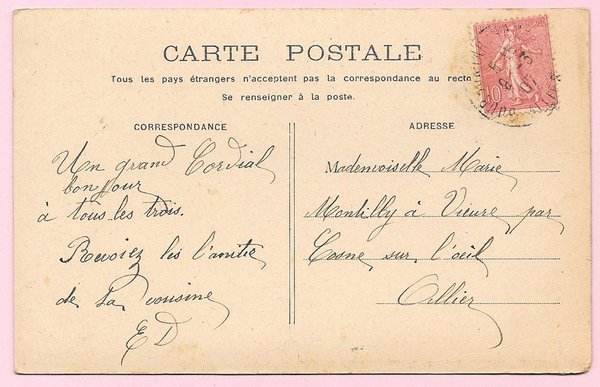 CARTE POSTALE
Tous les pays étrangers n'acceptent pas la correspondance au recto
Se renseigner à la poste.
CORRESPONDANCE
Un grand Cordial
bonjour
à tous les trois.
Recevez les l'amitie
de la cousine
E D
ADRESSE
Mademoiselle Marie
Montilly à Vieure par
Cosne sur l'oeil
Allier
10